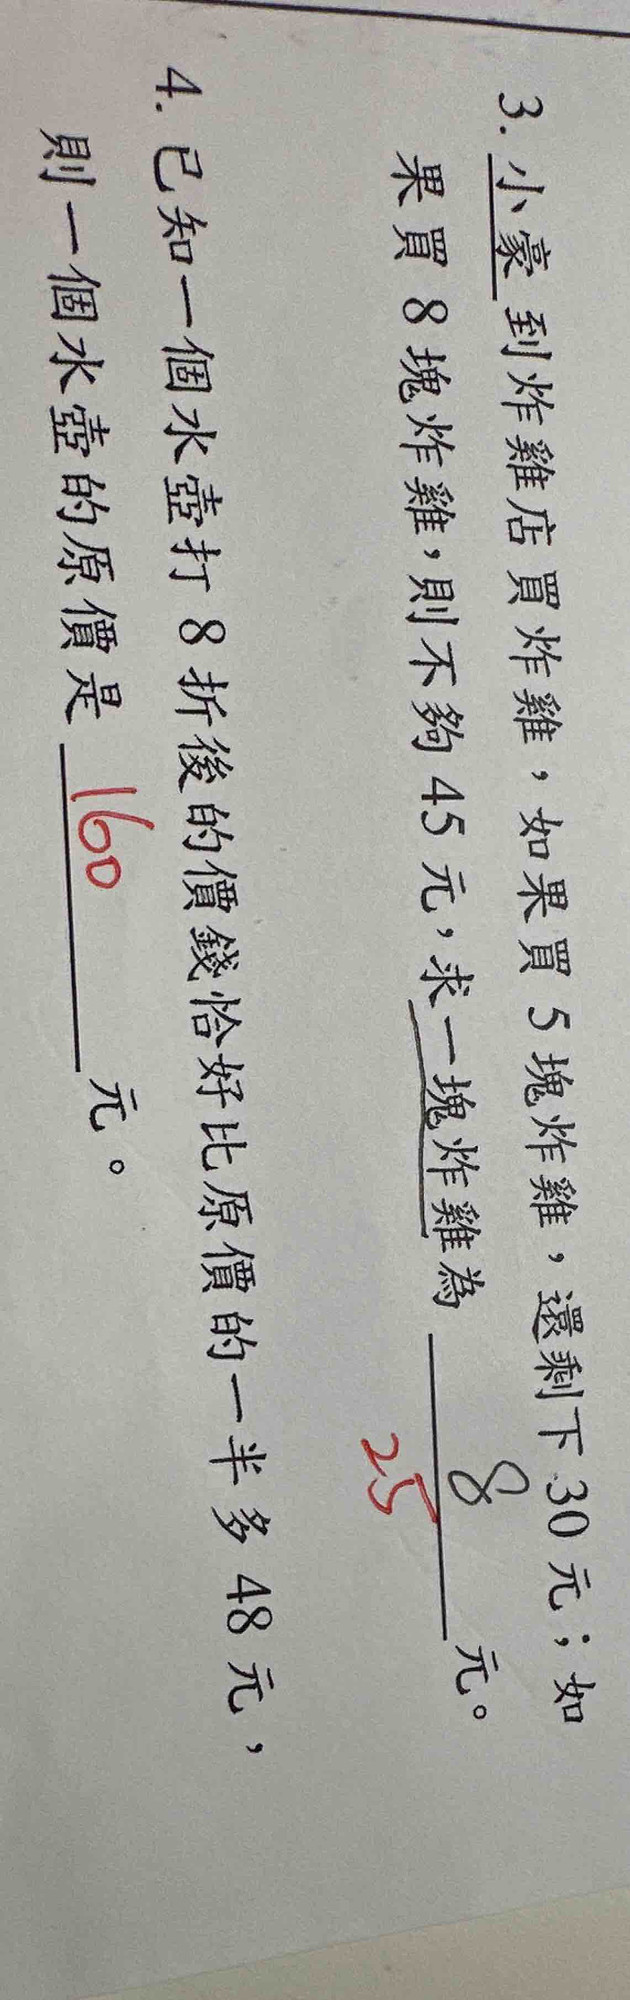 3. 小豪到炸雞店買炸雞，如果買5塊炸雞，還剩下30元；如
果買8塊炸雞，則不夠45元，求一塊炸雞為 8 元。
25
4. 已知一個水壺打8折後的價錢恰好比原價的一半多48元，
則一個水壺的原價是 160 元。